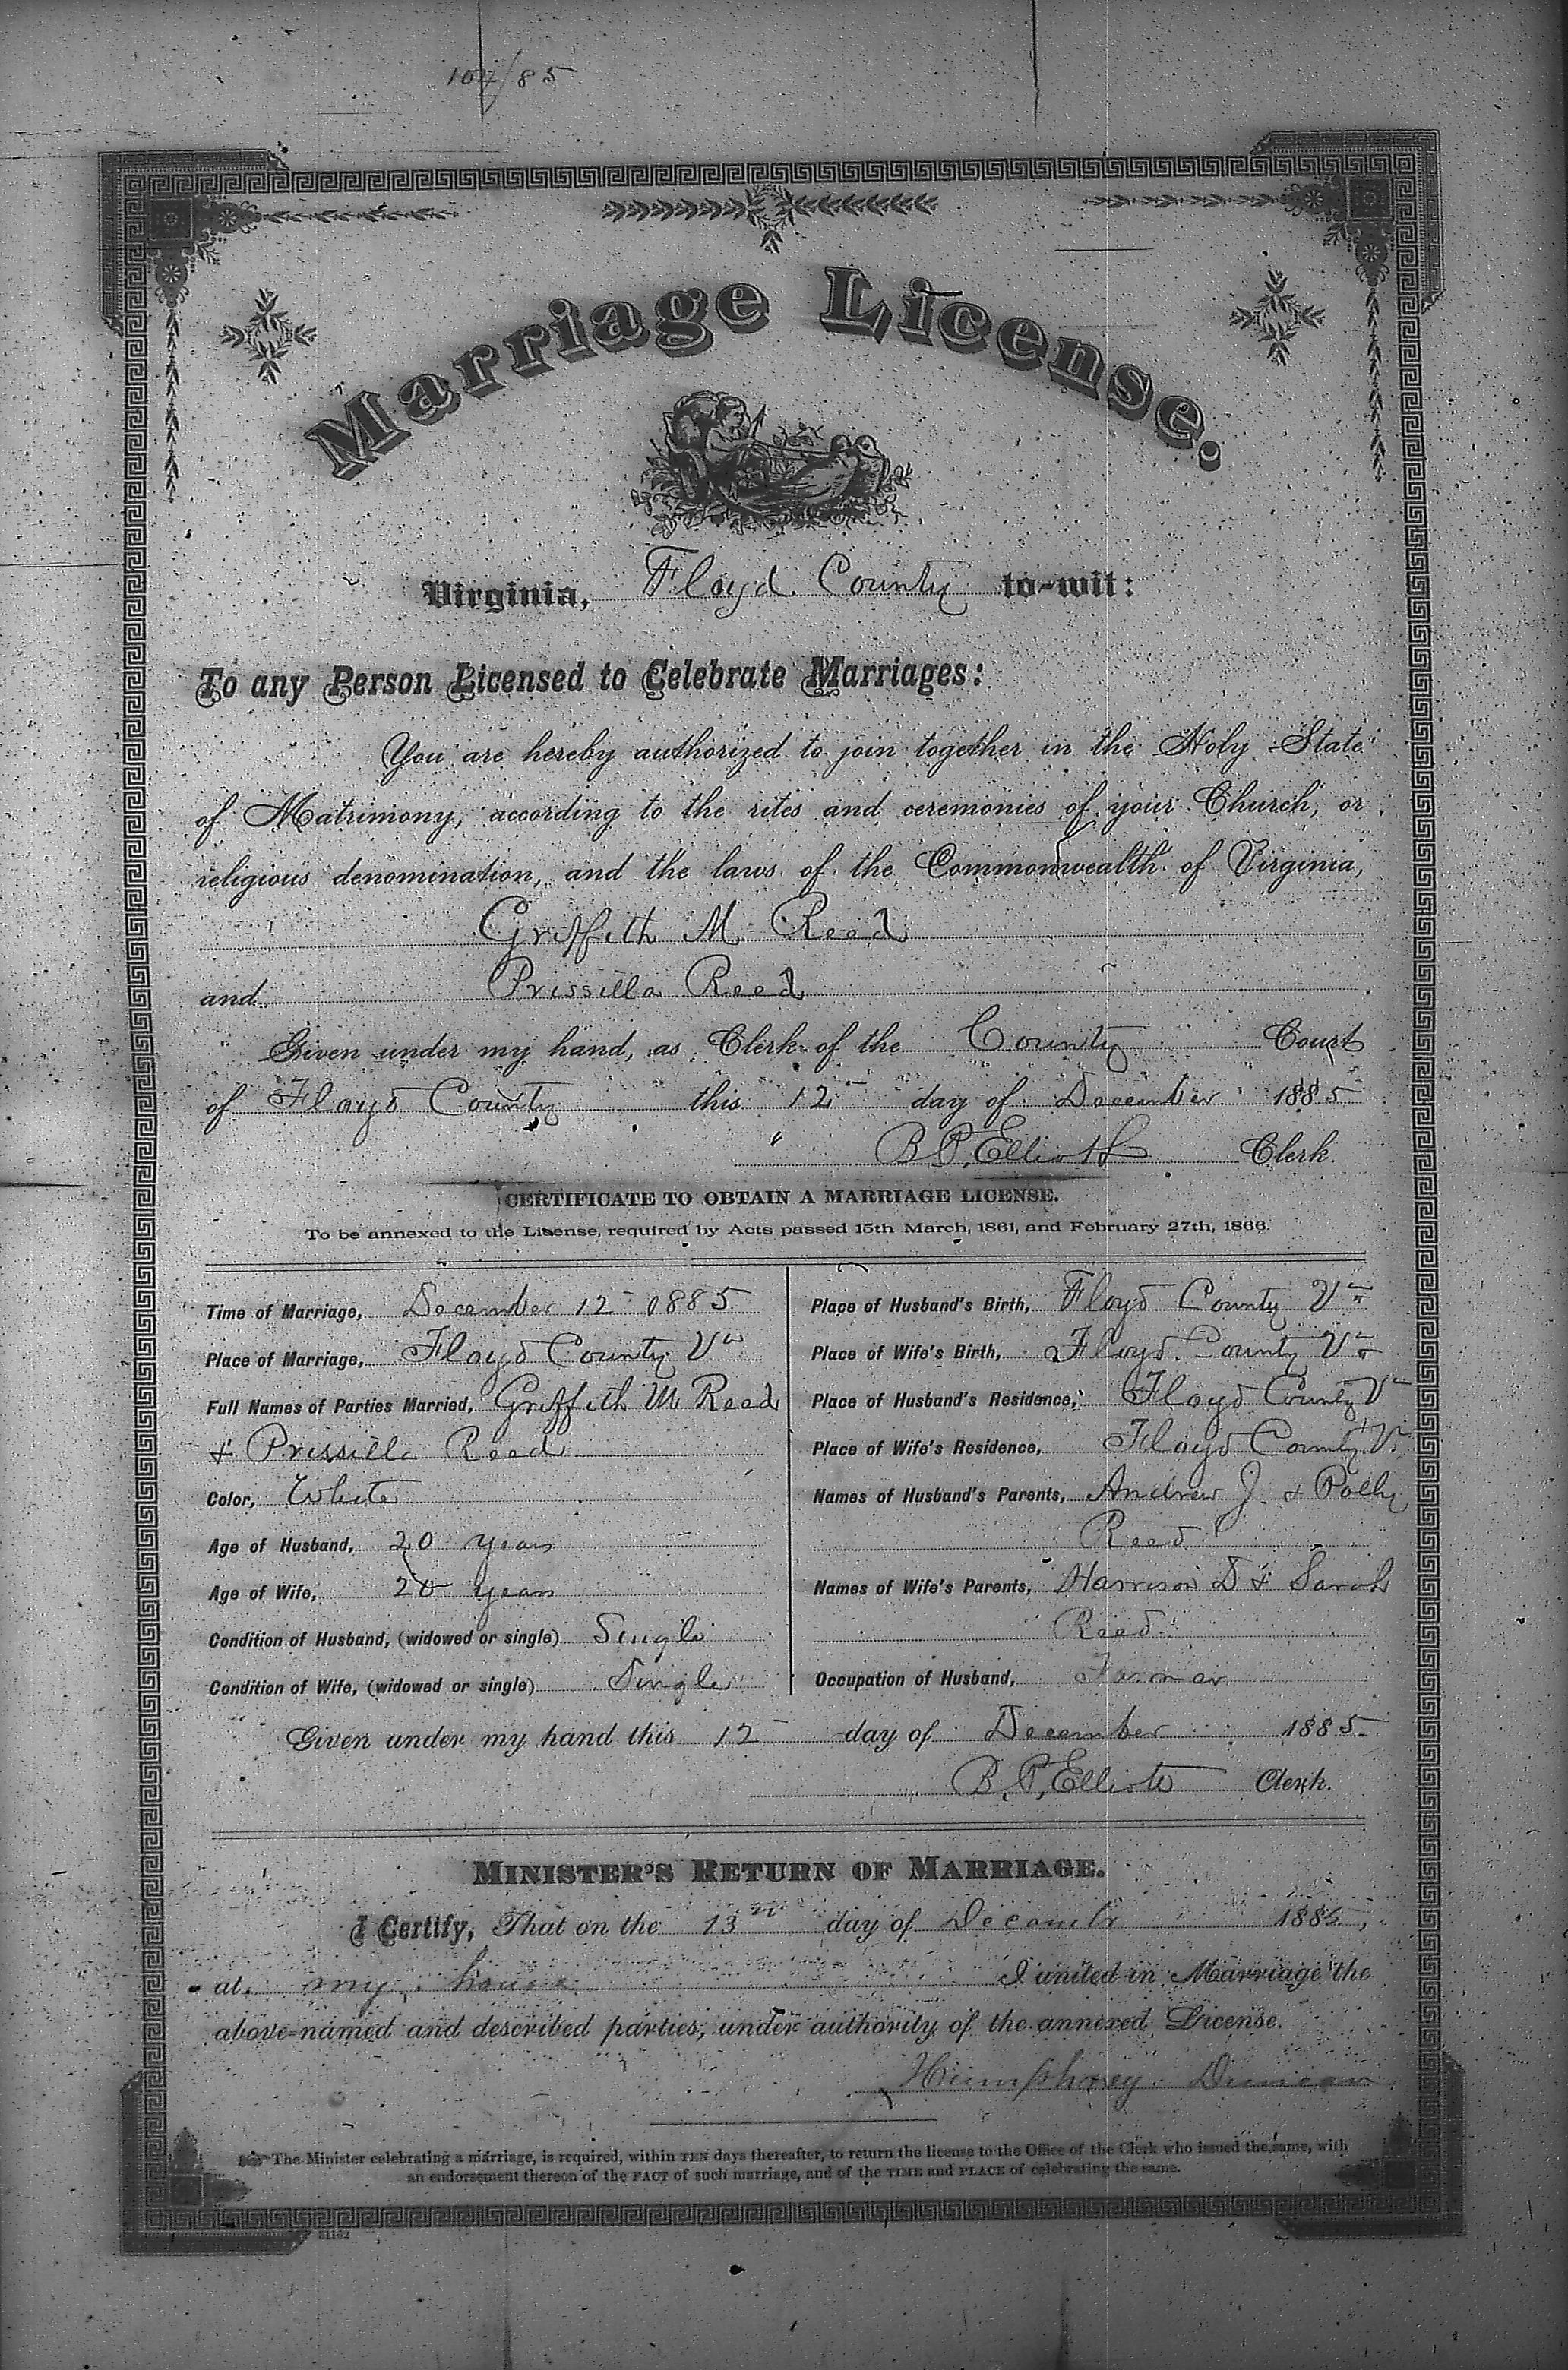 104/85
Marriage License.
Virginia, Floyd County to-wit:
To any Person Licensed to Celebrate Marriages:
You are hereby authorized to join together in the Holy State
of Matrimony, according to the rites and ceremonies of your Church, or
religious denomination, and the laws of the Commonwealth of Virginia,
Griffith M Reed
and Prissilla Reed
Given under my hand, as Clerk of the County Court
of Floyd County this 12 day of December 1885
B. P. Elliott Clerk.
CERTIFICATE TO OBTAIN A MARRIAGE LICENSE.
To be annexed to the License, required by Acts passed 15th March, 1861, and February 27th, 1866.
Time of Marriage, December 12 1885
Place of Marriage, Floyd County Va
Full Names of Parties Married, Griffith M Reed
+ Prissilla Reed
Color, White
Age of Husband, 20 years
Age of Wife, 20 years
Condition of Husband, (widowed or single) Single
Condition of Wife, (widowed or single) Single
Place of Husband's Birth, Floyd County Va
Place of Wife's Birth, Floyd County Va
Place of Husband's Residence, Floyd County V
Place of Wife's Residence, Floyd County V
Names of Husband's Parents, Andrew J. + Polly
Reed
Names of Wife's Parents, Harrison D + Sarah
Reed
Occupation of Husband, Farmer
Given under my hand this 12 day of December 1885
B. P. Elliott Clerk.
MINISTER'S RETURN OF MARRIAGE.
I Certify, That on the 13 day of Decembr 1885,
at my house I united in Marriage the
above-named and described parties, under authority of the annexed License.
Humphrey Duncan
The Minister celebrating a marriage, is required, within TEN days thereafter, to return the license to the Office of the Clerk who issued the same, with
an endorsement thereon of the FACT of such marriage, and of the TIME and PLACE of celebrating the same.
81162